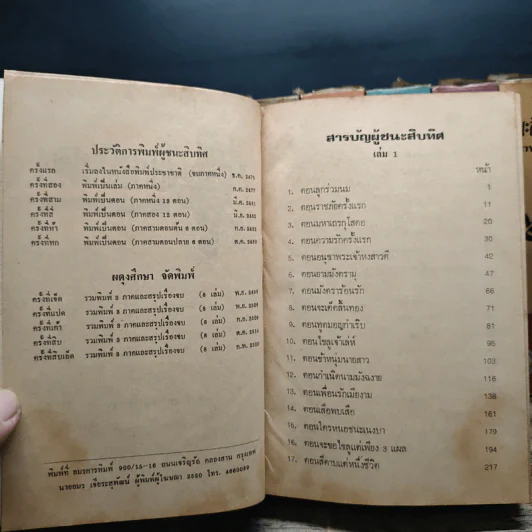 ประวัติการพิมพ์ผู้ชนะสิบทิศ
ครั้งแรก เริ่มลงในหนังสือพิมพ์ประชาชาติ (จบภาคหนึ่ง) ธ.ค. 2475
ครั้งที่สอง พิมพ์เป็นเล่ม (ภาคหนึ่ง)
ครั้งที่สาม พิมพ์เป็นตอน (ภาคหนึ่ง 12 ตอน)
ครั้งที่สี่ พิมพ์เป็นตอน (ภาคสอง 12 ตอน)
ครั้งที่ห้า พิมพ์เป็นตอน (ภาคสามตอนต้น 6 ตอน)
ครั้งที่หก พิมพ์เป็นตอน (ภาคสามตอนปลาย 6 ตอน)
ผดุงศึกษา จัดพิมพ์
ครั้งที่เจ็ด รวมพิมพ์ 3 ภาคและสรุปเรื่องจบ (8 เล่ม)
ครั้งที่แปด รวมพิมพ์ 3 ภาคและสรุปเรื่องจบ (8 เล่ม)
ครั้งที่เก้า รวมพิมพ์ 3 ภาคและสรุปเรื่องจบ (8 เล่ม)
ครั้งที่สิบ รวมพิมพ์ 3 ภาคและสรุปเรื่องจบ (8 เล่ม)
ครั้งที่สิบเอ็ด รวมพิมพ์ 3 ภาคและสรุปเรื่องจบ (8 เล่ม)
พิมพ์ที่ อมรการพิมพ์ 900/15-16 ถนนเจริญรัถ คลองสาน กรุงเทพ
ผู้พิมพ์ผู้โฆษณา 2520 โทร.
สารบัญผู้ชนะสิบทิศ
เล่ม 1
หน้า
1. ตอนลูกร่วมนม 1
2. ตอนราชภัยครั้งแรก 11
3. ตอนมหาเถรกุโสดอ 20
4. ตอนความรักครั้งแรก 30
5. ตอนอนุชาพระเจ้าหงสาวดี 42
6. ตอนยามมังตรามุ 47
7. ตอนมังตราร้อนรัก 66
8. ตอนจะเด็ดสิ้นทอง 71
9. ตอนทุกมอญกำเริบ 81
10. ตอนไขลูเจ้าเล่ห์ 95
11. ตอนข้าหนุ่มนายสาว 103
12. ตอนกำเนิดนามมังฉงาย 116
13. ตอนเพื่อนรักเมียงาม 138
14. ตอนเสือพบเสือ 161
15. ตอนใครหนอชนะเนงบา 179
16. ตอนจะขอไขลูแต่เพียง 3 แผล 194
17. ตอนสี่ดาบแต่หนึ่งชีวิต 217